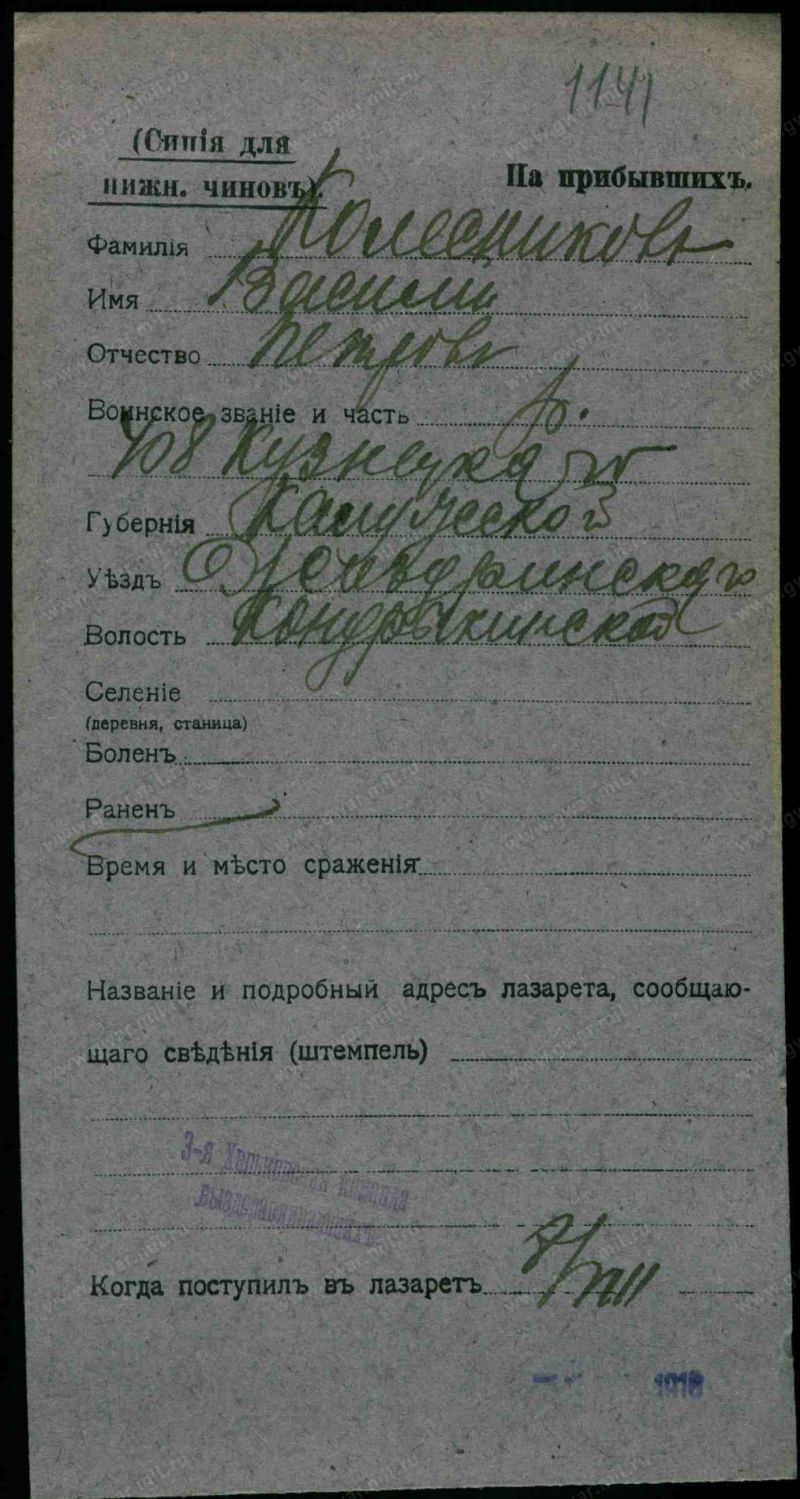 1141
(Синія для
нижн. чиновъ).
На прибывшихъ.
Фамилія Колесниковъ
Имя Василій
Отчество Петровъ
Воинское званіе и часть р.
408 Кузнецкаго
Губернія Калужской
Уѣздъ Жиздринскаго
Волость Кондрыкинской
Селеніе
(деревня, станица)
Боленъ
Раненъ
Время и мѣсто сраженія
Названіе и подробный адресъ лазарета, сообщаю-
щаго свѣдѣнія (штемпель)
3-я Харьковская команда
выздоравливающихъ
Когда поступилъ въ лазаретъ 8/VIII
1916